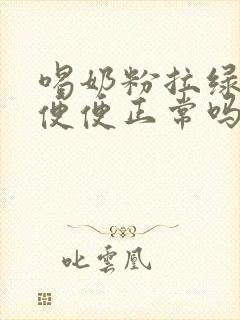 喝奶粉拉绿
便便正常吗
叱雲凰